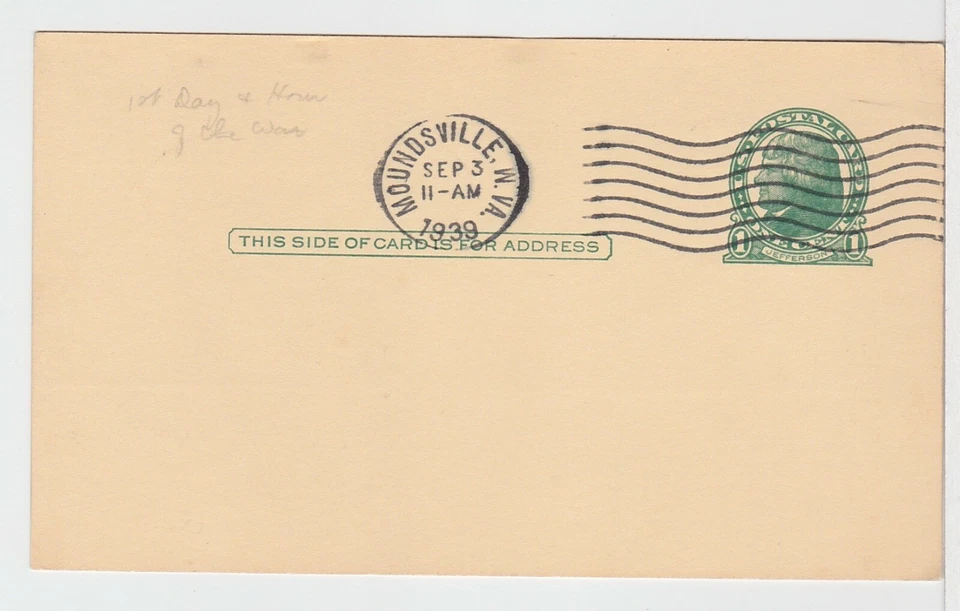 1st Day & Hour
of the War
MOUNDSVILLE, W. VA.
SEP 3
11-AM
1939
U.S. POSTAL CARD
1 1
JEFFERSON
THIS SIDE OF CARD IS FOR ADDRESS